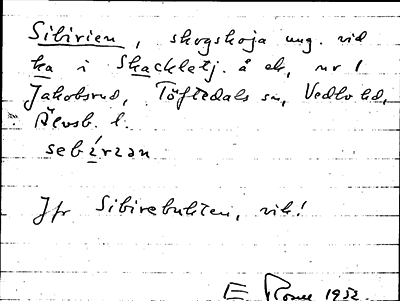 Sibirien, skogskoja ung. vid
ka i Shacklelj. å ek, nr 1
Jakobsrud, Töftedals sn, Vedbo hd,
Älvsb. l.
sebírɪən
Jfr Sibirebukten, vik!
E 1952.